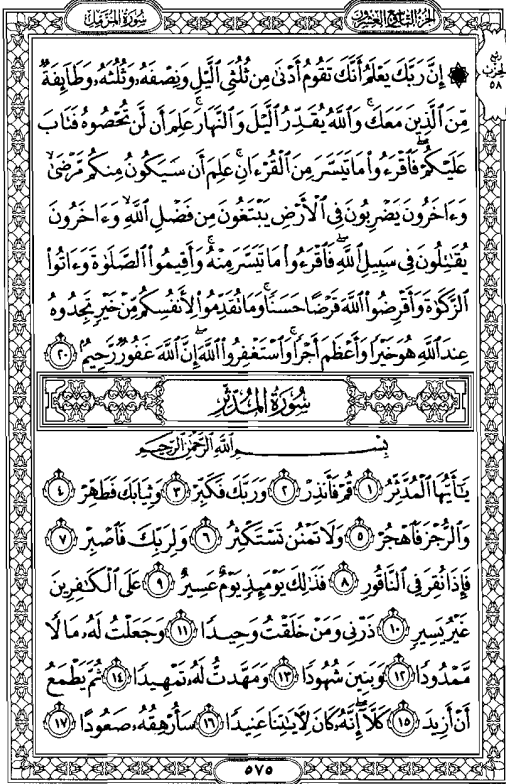 سُورَةُ المُزَّمِّل
الجُزْءُ التَّاسِعُ وَالعِشْرُونَ
رُبع
الحِزْب
٥٨
۞ إِنَّ رَبَّكَ يَعْلَمُ أَنَّكَ تَقُومُ أَدْنَىٰ مِن ثُلُثَيِ ٱلَّيْلِ وَنِصْفَهُۥ وَثُلُثَهُۥ وَطَآئِفَةٌ
مِّنَ ٱلَّذِينَ مَعَكَۚ وَٱللَّهُ يُقَدِّرُ ٱلَّيْلَ وَٱلنَّهَارَۚ عَلِمَ أَن لَّن تُحْصُوهُ فَتَابَ
عَلَيْكُمْۖ فَٱقْرَءُوا۟ مَا تَيَسَّرَ مِنَ ٱلْقُرْءَانِۚ عَلِمَ أَن سَيَكُونُ مِنكُم مَّرْضَىٰۙ
وَءَاخَرُونَ يَضْرِبُونَ فِى ٱلْأَرْضِ يَبْتَغُونَ مِن فَضْلِ ٱللَّهِۙ وَءَاخَرُونَ
يُقَٰتِلُونَ فِى سَبِيلِ ٱللَّهِۖ فَٱقْرَءُوا۟ مَا تَيَسَّرَ مِنْهُۚ وَأَقِيمُوا۟ ٱلصَّلَوٰةَ وَءَاتُوا۟
ٱلزَّكَوٰةَ وَأَقْرِضُوا۟ ٱللَّهَ قَرْضًا حَسَنًاۚ وَمَا تُقَدِّمُوا۟ لِأَنفُسِكُم مِّنْ خَيْرٍ تَجِدُوهُ
عِندَ ٱللَّهِ هُوَ خَيْرًا وَأَعْظَمَ أَجْرًاۚ وَٱسْتَغْفِرُوا۟ ٱللَّهَۖ إِنَّ ٱللَّهَ غَفُورٌ رَّحِيمٌۢ ٢٠
سُورَةُ المُدَّثِّرِ
بِسْمِ ٱللَّهِ ٱلرَّحْمَٰنِ ٱلرَّحِيمِ
يَٰٓأَيُّهَا ٱلْمُدَّثِّرُ ١ قُمْ فَأَنذِرْ ٢ وَرَبَّكَ فَكَبِّرْ ٣ وَثِيَابَكَ فَطَهِّرْ ٤
وَٱلرُّجْزَ فَٱهْجُرْ ٥ وَلَا تَمْنُن تَسْتَكْثِرُ ٦ وَلِرَبِّكَ فَٱصْبِرْ ٧
فَإِذَا نُقِرَ فِى ٱلنَّاقُورِ ٨ فَذَٰلِكَ يَوْمَئِذٍ يَوْمٌ عَسِيرٌ ٩ عَلَى ٱلْكَٰفِرِينَ
غَيْرُ يَسِيرٍ ١٠ ذَرْنِى وَمَنْ خَلَقْتُ وَحِيدًا ١١ وَجَعَلْتُ لَهُۥ مَالًا
مَّمْدُودًا ١٢ وَبَنِينَ شُهُودًا ١٣ وَمَهَّدتُّ لَهُۥ تَمْهِيدًا ١٤ ثُمَّ يَطْمَعُ
أَنْ أَزِيدَ ١٥ كَلَّآۖ إِنَّهُۥ كَانَ لِءَايَٰتِنَا عَنِيدًا ١٦ سَأُرْهِقُهُۥ صَعُودًا ١٧
٥٧٥